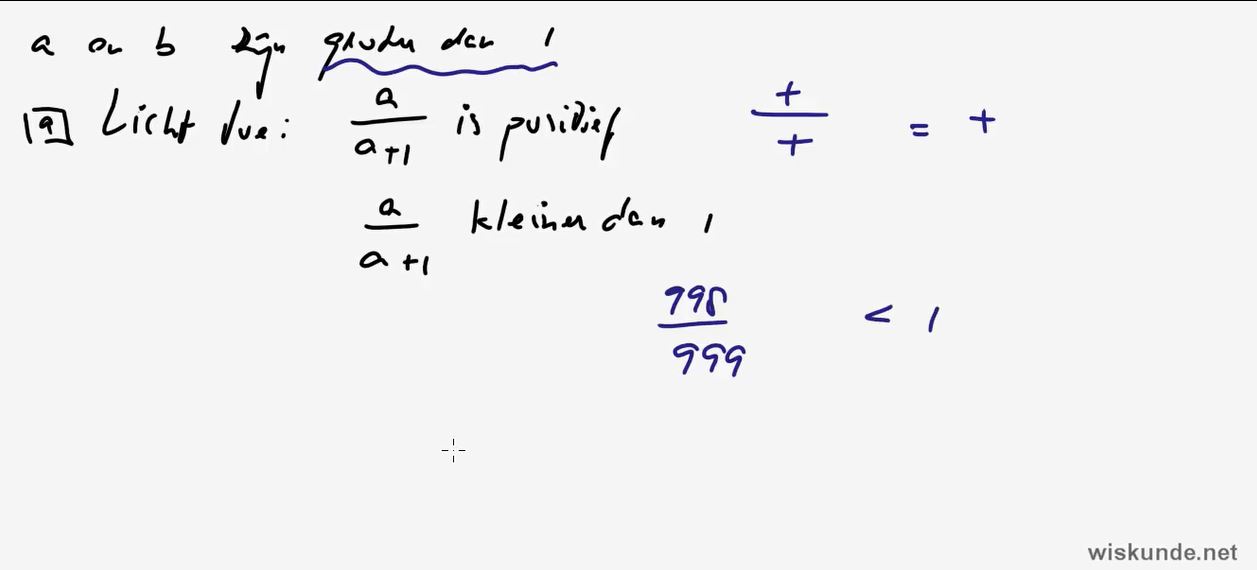 a en b zijn groter dan 1
a Licht toe: a/a+1 is positief + / + = +
a/a+1 kleiner dan 1
998/999 < 1
wiskunde.net